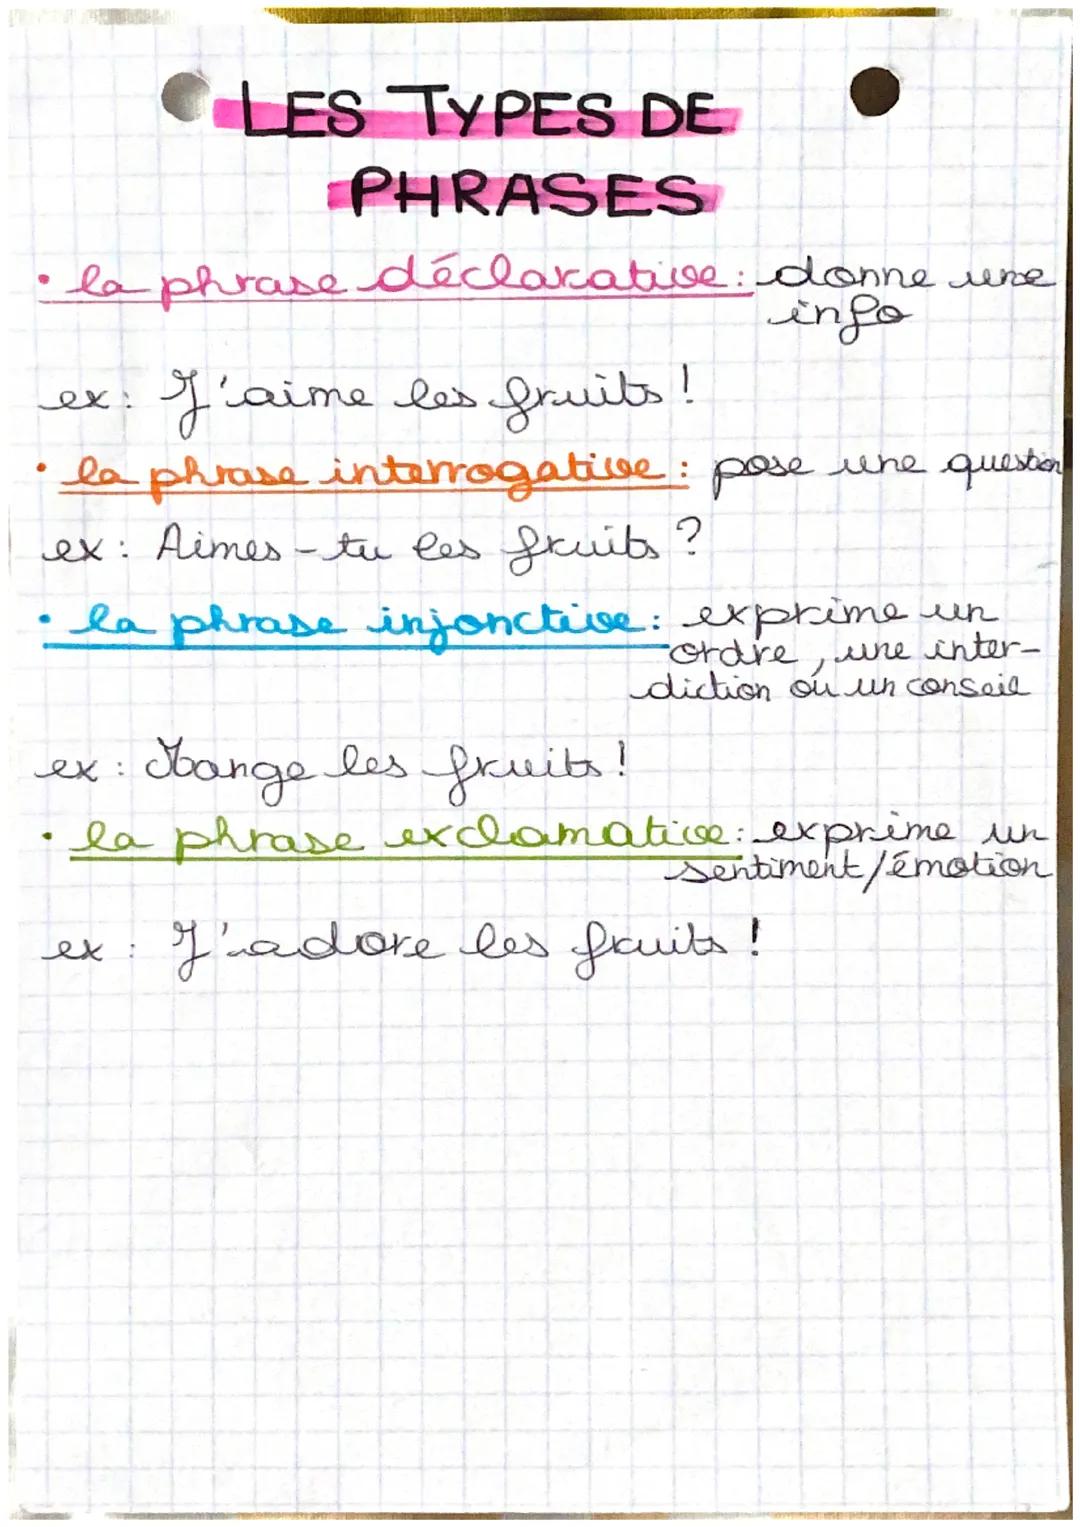 LES TYPES DE
PHRASES
• la phrase déclarative : donne une
info
ex : J'aime les fruits !
• la phrase interrogative : pose une question
ex : Aimes-tu les fruits ?
• la phrase injonctive : exprime un
ordre, une inter-
diction ou un conseil
ex : Mange les fruits !
• la phrase exclamative : exprime un
sentiment/émotion
ex : J'adore les fruits !